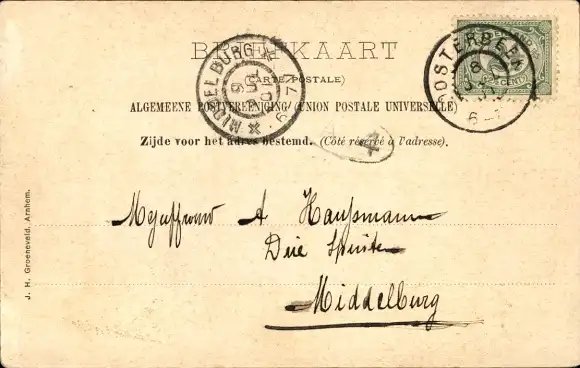 BRIEFKAART
(CARTE POSTALE)
ALGEMEENE POSTVEREENIGING (UNION POSTALE UNIVERSELLE)
Zijde voor het adres bestemd. (Côté réservé à l'adresse).
OOSTERBEEK
MIDDELBURG
Mejuffrouw A Haussmann
Drie
Middelburg
J. H. Groeneveld, Arnhem.